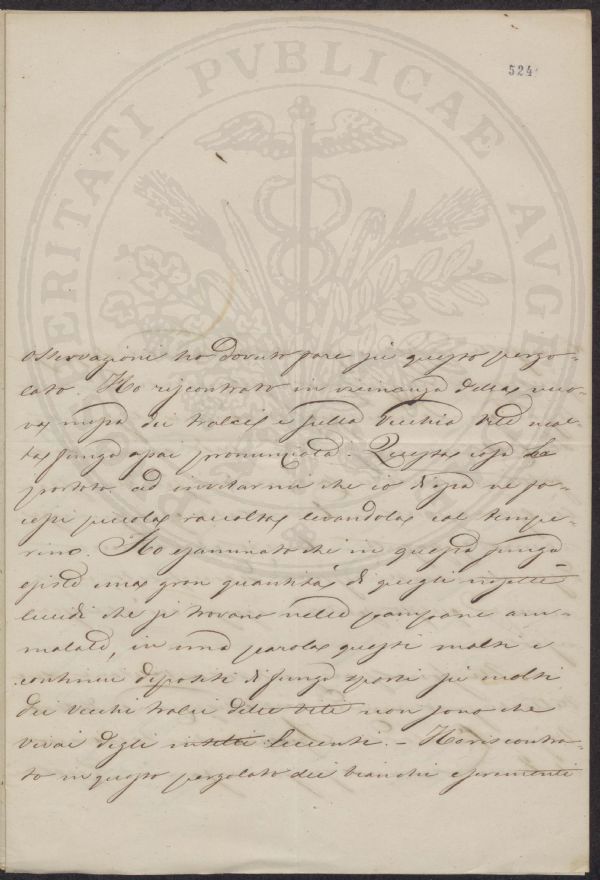 524
VERITATI PVBLICAE AVGE
osservazioni ho dovuto fare su questo pergo-
lato. Ho riscontrato in vicinanza della nuo-
va messa dei tralci e sulla vecchia vite mol-
ta funga assai pronunciata. Questa cosa ha
portato ad invitarmi che io di essa ne fa-
cessi piccola raccolta levandola col tempe-
rino. Ho esaminato che in questa funga
esiste una gran quantità di quegli insetti
lucidi che si trovano nelle pampane am-
malate, in una parola questi molti e
continui depositi di funga sparsi su molti
dei vecchi tralci delle viti non sono che
vivai degli insetti lucenti. - Ho riscontra-
to in questo pergolato dei bianchi